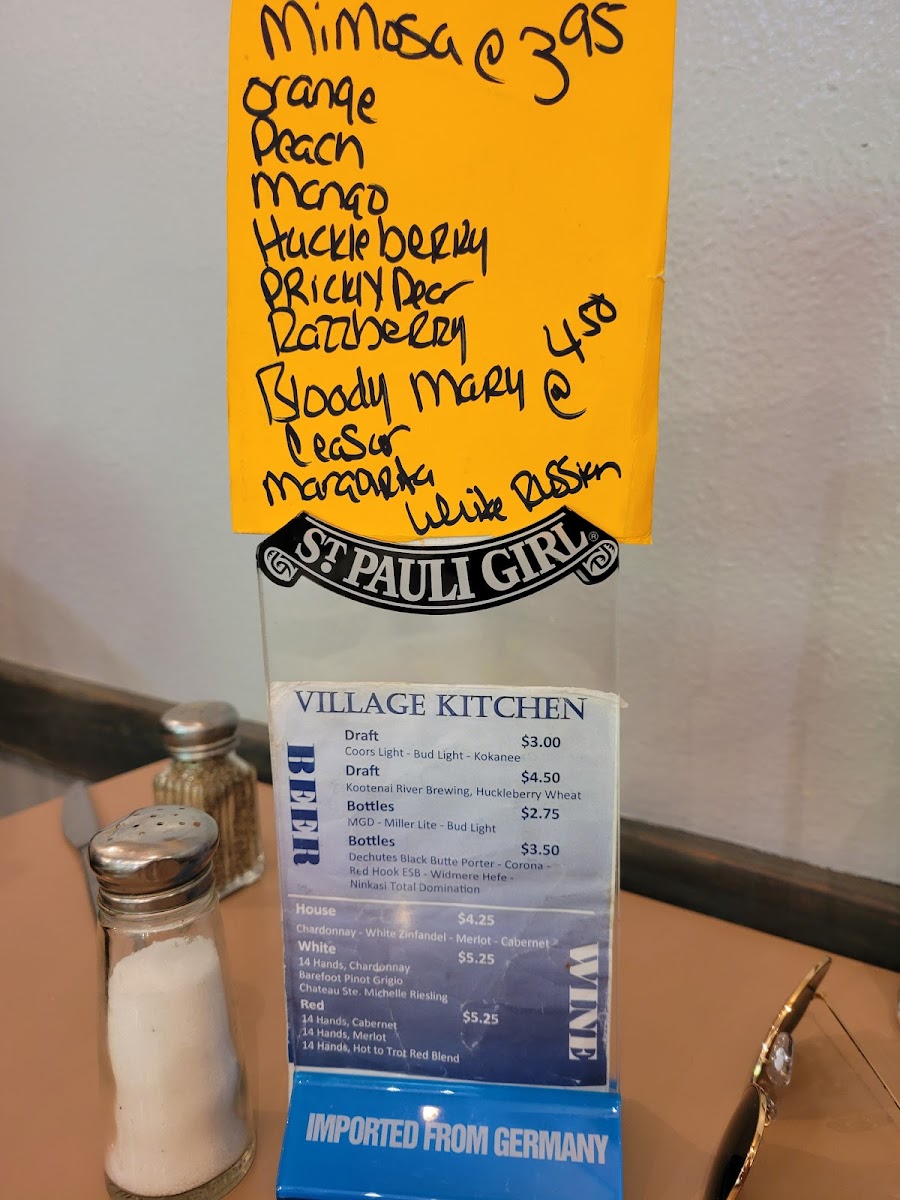 Mimosa @ 3.95
orange
Peach
Mango
Huckleberry
Prickly Pear
Razzberry
Bloody Mary @ 4.50
Ceasar
Margarita
White Russian
ST. PAULI GIRL®
VILLAGE KITCHEN
BEER
Draft $3.00
Coors Light - Bud Light - Kokanee
Draft $4.50
Kootenai River Brewing, Huckleberry Wheat
Bottles $2.75
MGD - Miller Lite - Bud Light
Bottles $3.50
Dechutes Black Butte Porter - Corona -
Red Hook ESB - Widmere Hefe -
Ninkasi Total Domination
WINE
House $4.25
Chardonnay - White Zinfandel - Merlot - Cabernet
White $5.25
14 Hands, Chardonnay
Barefoot Pinot Grigio
Chateau Ste. Michelle Riesling
Red $5.25
14 Hands, Cabernet
14 Hands, Merlot
14 Hands, Hot to Trot Red Blend
IMPORTED FROM GERMANY